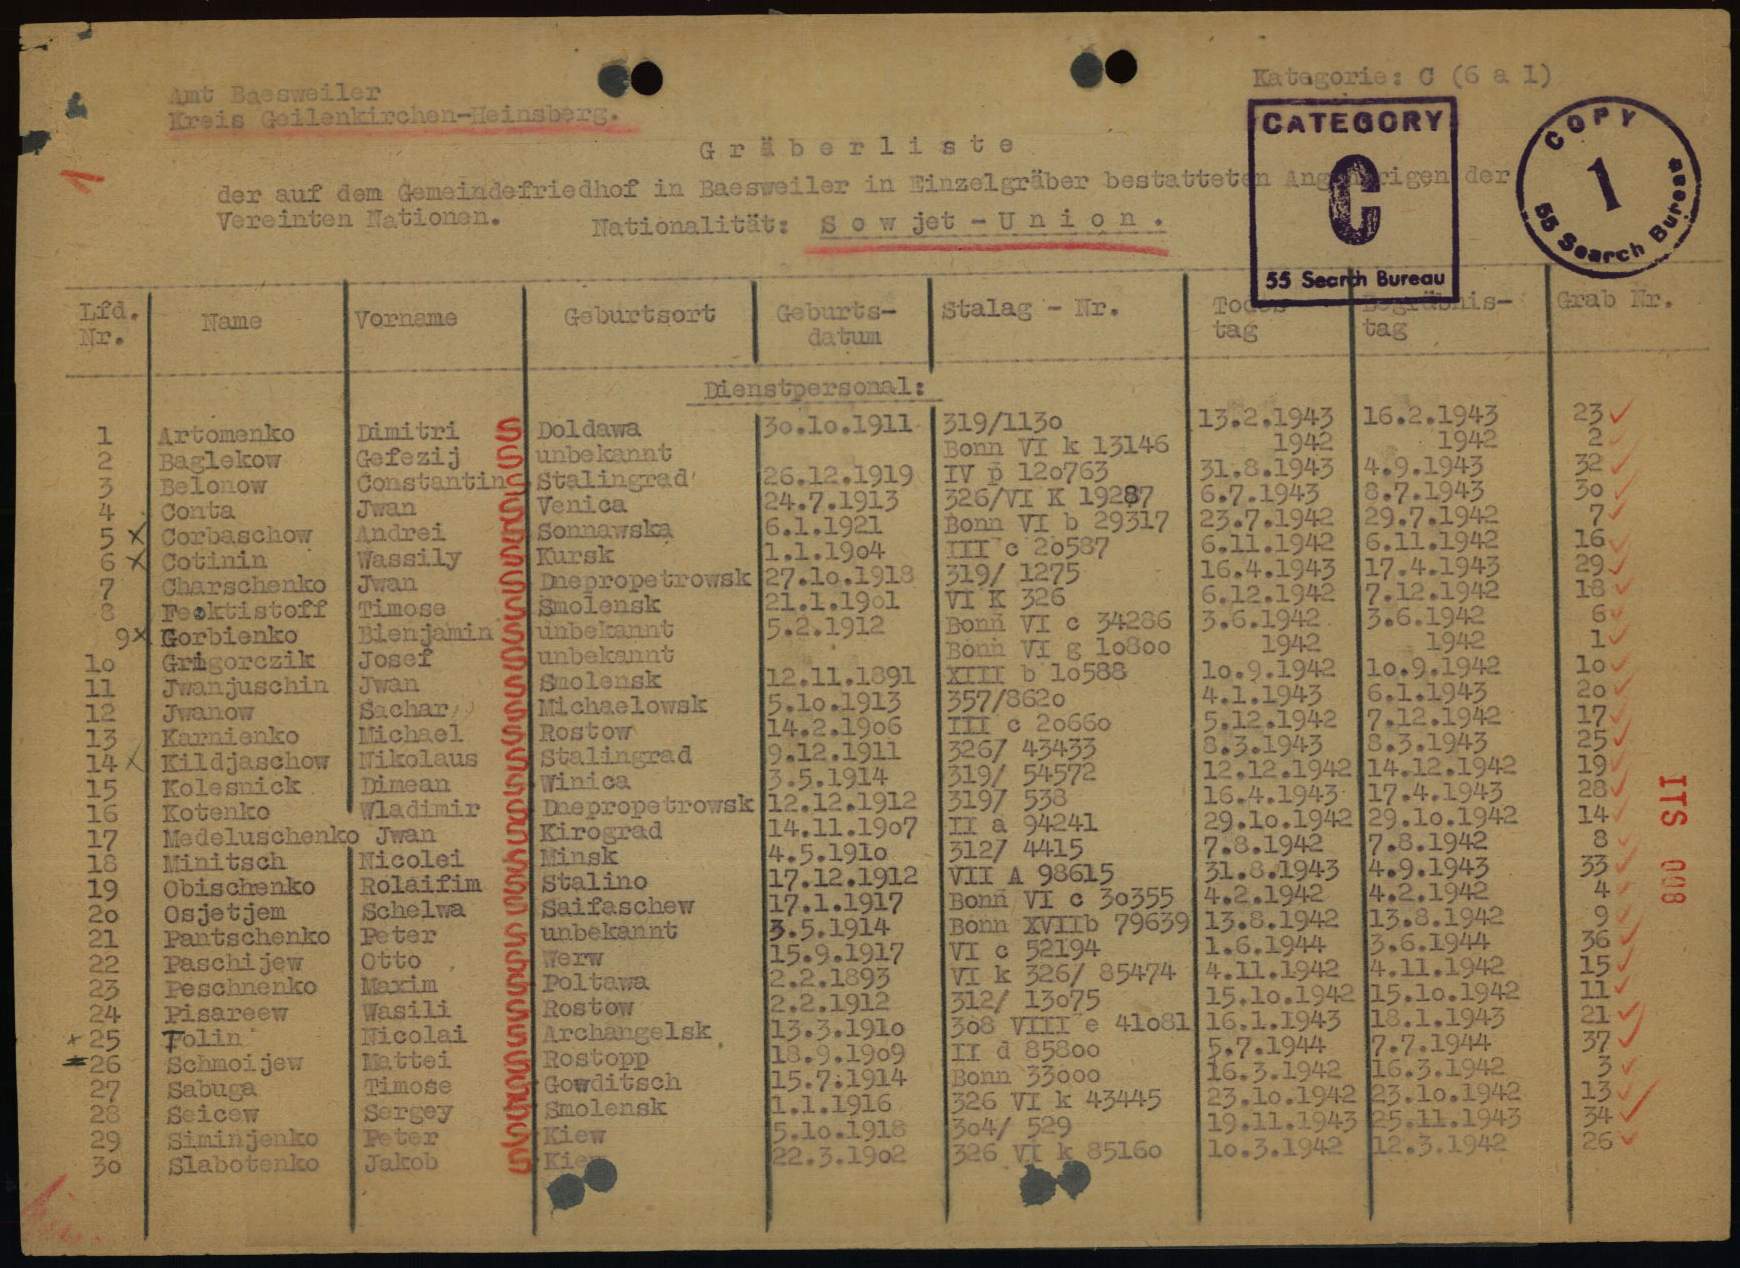 Amt Baesweiler
Kreis Geilenkirchen-Heinsberg.
Kategorie: C (6 a 1)
CATEGORY
C
55 Search Bureau
COPY
1
55 Search Bureau
Gräberliste
der auf dem Gemeindefriedhof in Baesweiler in Einzelgräber bestatteten Angehörigen der
Vereinten Nationen. Nationalität: Sowjet-Union.
Lfd. Nr. Name Vorname Geburtsort Geburts-datum Stalag - Nr. Todes tag Begräbnis-tag Grab Nr.
Dienstpersonal:
1 Artomenko Dimitri S Doldawa 3o.1o.1911 319/113o 13.2.1943 16.2.1943 23
2 Baglekow Gefezij S unbekannt Bonn VI k 13146 1942 1942 2
3 Belonow Constantin S Stalingrad 26.12.1919 IV B 12o763 31.8.1943 4.9.1943 32
4 Conta Jwan S Venica 24.7.1913 326/VI K 19287 6.7.1943 8.7.1943 3o
5 x Corbaschow Andrei S Sonnawska 6.1.1921 Bonn VI b 29317 23.7.1942 29.7.1942 7
6 x Cotinin Wassily S Kursk 1.1.19o4 III c 2o587 6.11.1942 6.11.1942 16
7 Charschenko Jwan S Dnepropetrowsk 27.1o.1918 319/ 1275 16.4.1943 17.4.1943 29
8 Feoktistoff Timose S Smolensk 21.1.19o1 VI K 326 6.12.1942 7.12.1942 18
9 x Gorbienko Bienjamin S unbekannt 5.2.1912 Bonn VI c 34286 3.6.1942 3.6.1942 6
1o Grigorczik Josef S unbekannt Bonn VI g 1o8oo 1942 1942 1
11 Jwanjuschin Jwan S Smolensk 12.11.1891 XIII b 1o588 1o.9.1942 1o.9.1942 1o
12 Jwanow Sachar S Michaelowsk 5.1o.1913 357/862o 4.1.1943 6.1.1943 2o
13 Karnienko Michael S Rostow 14.2.19o6 III c 2o66o 5.12.1942 7.12.1942 17
14 x Kildjaschow Nikolaus S Stalingrad 9.12.1911 326/ 43433 8.3.1943 8.3.1943 25
15 Kolesnick Dimean S Winica 3.5.1914 319/ 54572 12.12.1942 14.12.1942 19
16 Kotenko Wladimir S Dnepropetrowsk 12.12.1912 319/ 538 16.4.1943 17.4.1943 28
17 Medeluschenko Jwan S Kirograd 14.11.19o7 II a 94241 29.1o.1942 29.1o.1942 14
18 Minitsch Nicolei S Minsk 4.5.191o 312/ 4415 7.8.1942 7.8.1942 8
19 Obischenko Rolaifim S Stalino 17.12.1912 VII A 98615 31.8.1943 4.9.1943 33
2o Osjetjem Schelwa S Saifaschew 17.1.1917 Bonn VI c 3o355 4.2.1942 4.2.1942 4
21 Pantschenko Peter S unbekannt 3.5.1914 Bonn XVIIb 79639 13.8.1942 13.8.1942 9
22 Paschijew Otto S Werw 15.9.1917 VI c 52194 1.6.1944 3.6.1944 36
23 Peschnenko Maxim S Poltawa 2.2.1893 VI k 326/ 85474 4.11.1942 4.11.1942 15
24 Pisareew Wasili S Rostow 2.2.1912 312/ 13o75 15.1o.1942 15.1o.1942 11
x 25 Polin Nicolai S Archangelsk 13.3.191o 3o8 VIII e 41o81 16.1.1943 18.1.1943 21
26 Schmoijew Mattei S Rostopp 18.9.19o9 II d 858oo 5.7.1944 7.7.1944 37
27 Sabuga Timose S Gowditsch 15.7.1914 Bonn 33ooo 16.3.1942 16.3.1942 3
28 Seicew Sergey S Smolensk 1.1.1916 326 VI k 43445 23.1o.1942 23.1o.1942 13
29 Siminjenko Peter S Kiew 5.1o.1918 3o4/ 529 19.11.1943 25.11.1943 34
3o Slabotenko Jakob S Kiew 22.3.19o2 326 VI k 8516o 1o.3.1942 12.3.1942 26
ITS 008